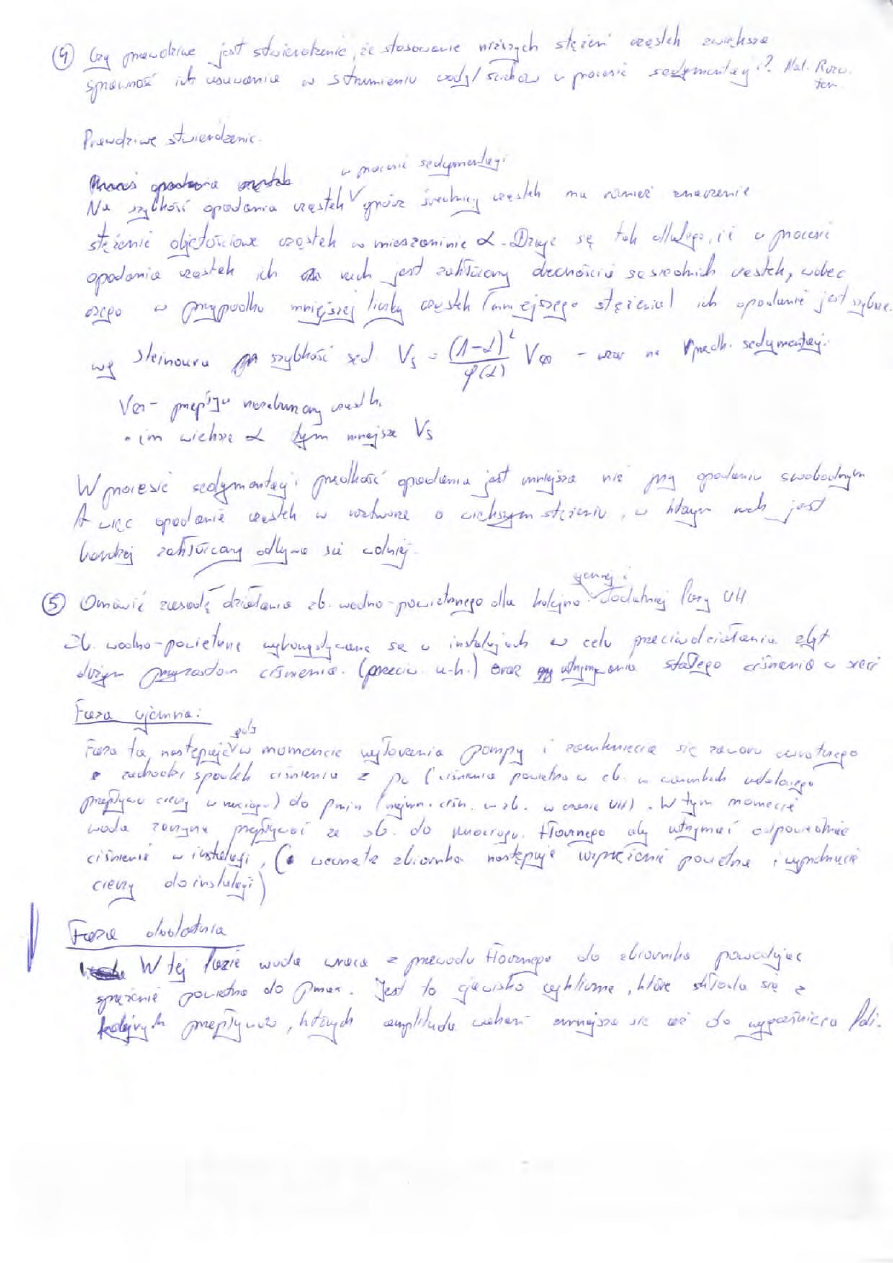 ④ Czy prawdziwe jest stwierdzenie, że stosowanie niższych stężeń cząstek zwiększa
sprawność ich usuwania w strumieniu wody/ścieków w procesie sedymentacji?
Prawdziwe stwierdzenie.
w procesie sedymentacji
Na szybkość opadania cząstek oprócz średnicy cząstek ma również znaczenie
stężenie objętościowe cząstek w mieszaninie α. Dzieje się tak dlatego, iż w procesie
opadania cząstek ich ruch jest zakłócany obecnością sąsiednich cząstek, wobec
czego w przypadku mniejszej liczby cząstek (mniejszego stężenia) ich opadanie jest szybsze.
wg Steinoura szybkość sed. Vs = (1-α)² / φ(α) V∞ - wzór na prędk. sedymentacji
V∞ - cząstki
• im większe α tym mniejsze Vs
W procesie sedymentacji prędkość opadania jest mniejsza niż przy opadaniu swobodnym
A więc opadanie cząstek w roztworze o większym stężeniu, w którym ruch jest
bardziej zakłócany odbywa się wolniej.
⑤ Omówić zasadę działania zb. wodno-powietrznego dla kolejno: ujemnej i dodatniej fazy UH
Zb. wodno-powietrzne wykorzystywane są w instalacjach w celu przeciwdziałania zbyt
dużym przyrostom ciśnienia. (przeciw. u.h.) oraz utrzymania stałego ciśnienia w sieci
Faza ujemna:
Faza ta następuje w momencie wyłączenia pompy i zamknięcia się zaworu zwrotnego
zachodzi spadek ciśnienia z po (ciśnienia powietrza w zb. w warunkach ustalonego
przepływu cieczy w rurociągu) do pmin (najmn. ciśn. w zb. w czasie UH). W tym momencie
woda zaczyna przepływać ze zb. do rurociągu tłocznego aby utrzymać odpowiednie
ciśnienie w instalacji, (wewnątrz zbiornika następuje rozprężenie powietrza i wypchnięcie
cieczy do instalacji)
Faza dodatnia
W tej fazie woda wraca z przewodu tłocznego do zbiornika powodując
sprężenie powietrza do pmax. Jest to zjawisko cykliczne, które składa się z
kolejnych przepływów, których amplituda wahań zmniejsza się aż do wygaśnięcia fali.